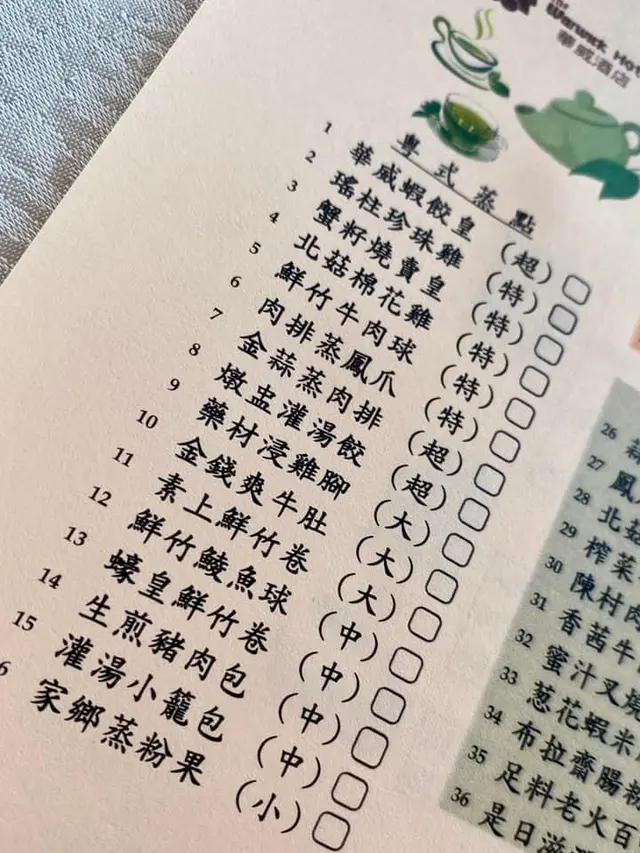 The
Warwick Hot
華威酒店
粵式蒸點
1 華威蝦餃皇 (超)
2 瑤柱珍珠雞 (特)
3 蟹籽燒賣皇 (特)
4 北菇棉花雞 (特)
5 鮮竹牛肉球 (特)
6 肉排蒸鳳爪 (特)
7 金蒜蒸肉排 (超)
8 燉盅灌湯餃 (超)
9 藥材浸雞腳 (大)
10 金錢爽牛肚 (大)
11 素上鮮竹卷 (大)
12 鮮竹鯪魚球 (中)
13 蠔皇鮮竹卷 (中)
14 生煎豬肉包 (中)
15 灌湯小籠包 (中)
6 家鄉蒸粉果 (小)
26
27 鳳
28 北菇
29 榨菜
30 陳村
31 香茜牛
32 蜜汁叉
33 蔥花蝦米
34 布拉齋腸
35 足料老火
36 是日滋